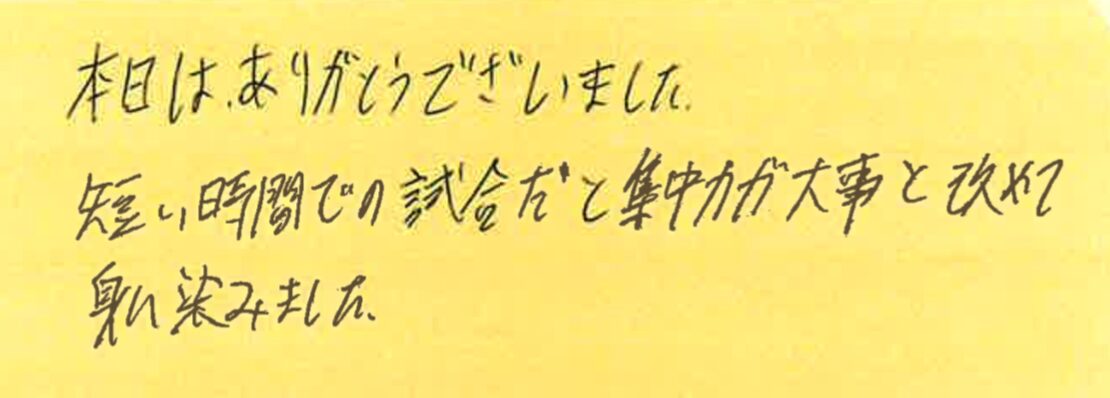 本日は、ありがとうございました。
短い時間での試合だと集中力が大事と改めて
身に染みました。